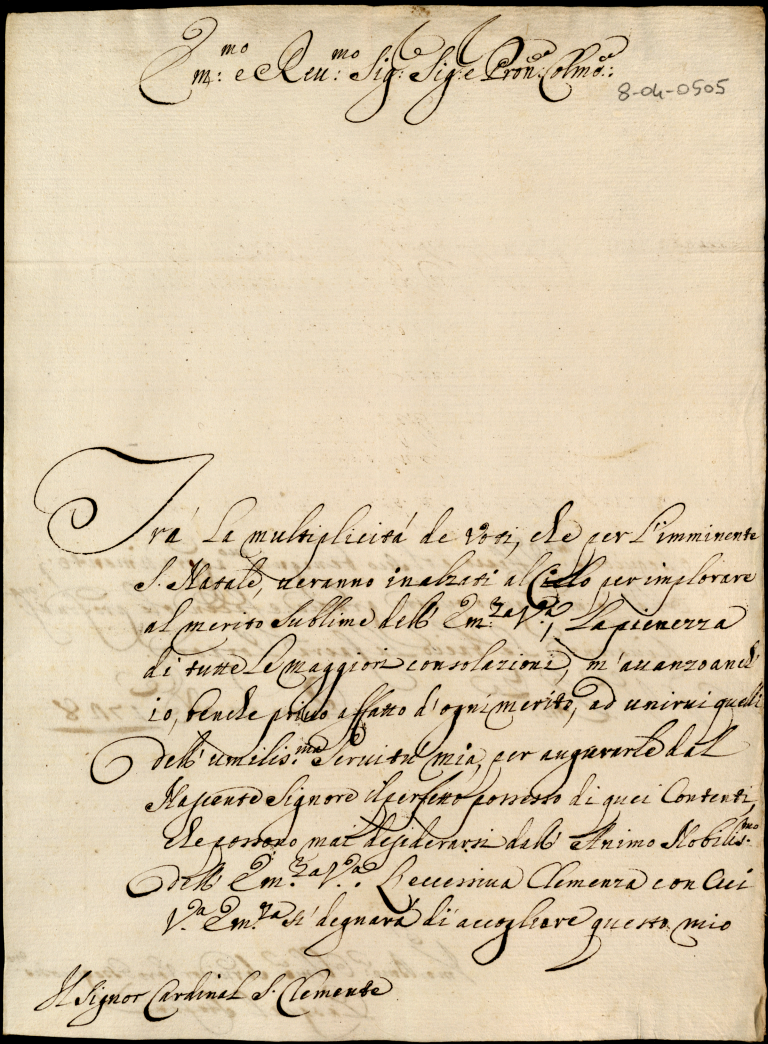 Em:mo e Reu:mo Sig: Sig:e Pron:e Colmo:
8-04-0505
Trà La multiplicità de voti, che per L'imminente
S. Natale, ueranno inalzati al Cielo per implorare
al merito sublime dell' Em.za V.a, La pienezza
di tutte Le maggiori consolazioni, m'auanzo anch'
io, benche priuo affatto d'ogni merito, ad unirui quelli
dell' umilis.ma Seruitù mia, per augurarle dal
Nascente Signore il perfetto possesso di quei Contenti,
che possono mai desiderarsi dall' Animo Nobilis.mo
dell' Em.za V.a. L'eccessiua Clemenza con Cui
V.a Em.za si degnarà di accogliere questo mio
Il Signor Cardinal S. Clemente